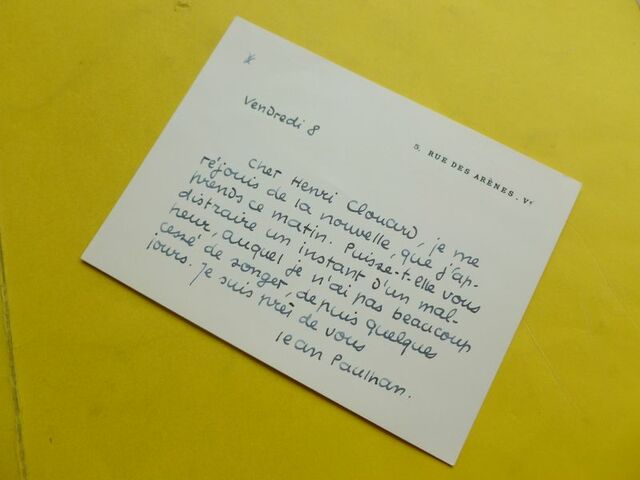 Vendredi 8
5, RUE DES ARÈNES. Vᵉ
Cher Henri Clouard, je me
réjouis de la nouvelle, que j'ap-
prends ce matin. Puisse-t-elle vous
distraire un instant d'un mal-
heur, auquel je n'ai pas beaucoup
cessé de songer, depuis quelques
jours. Je suis près de vous
Jean Paulhan.